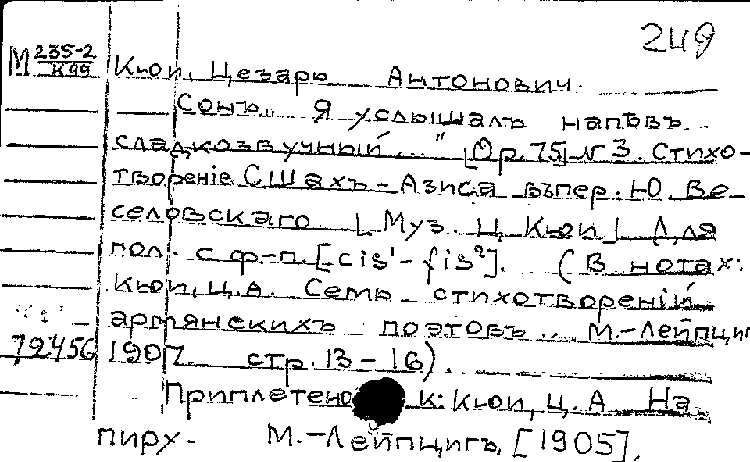 249
М 235-2
К 99
Кюи, Цезарь Антонович.
Сонъ. „Я услышалъ напѣвъ
сладкозвучный..." [Op. 75] № 3. Стихо-
творенiе СШахъ-Азиса въ пер. Ю. Ве-
селовскаго [Муз.] Ц. Кюи] Для
пол. с ф-п. [cis¹-fis²]. (В нотах:
Кюи, Ц.А. Семь стихотворенiй
армянскихъ поэтовъ.. М.-Лейпциг
72456 1907 стр. 13-16).
Приплетено к: Кюи, Ц. А. На
пиру. М.-Лейпцигъ, [1905].